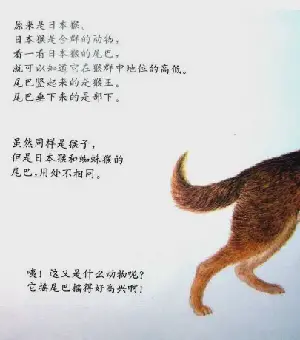 原来是日本猴、
日本猴是合群的动物，
看一看日本猴的尾巴，
就可以知道它在猴群中地位的高低。
尾巴竖起来的是猴王。
尾巴垂下来的是部下。
虽然同样是猴子，
但是日本猴和蜘蛛猴的
尾巴，用处不相同。
咦！这又是什么动物呢？
它把尾巴摇得好高兴啊！